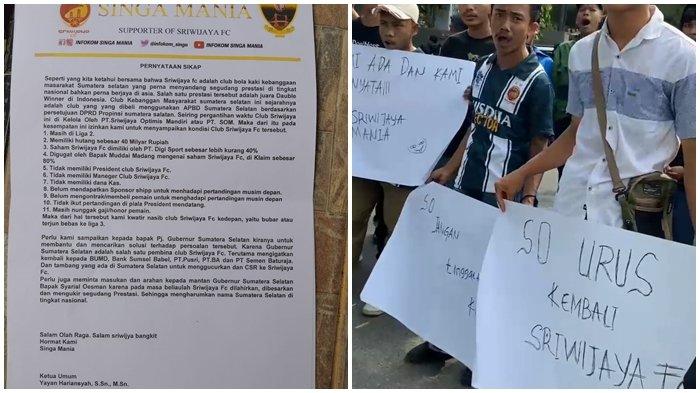 SINGA MANIA
SUPPORTER OF SRIWIJAYA FC
INFOKOM SINGA MANIA
@infokom_singa
INFOKOM SINGA MANIA
PERNYATAAN SIKAP
Seperti yang kita ketahui bersama bahwa Sriwijaya fc adalah club bola kaki kebanggaan
masarakat Sumatera selatan yang perna menyandang segudang prestasi di tingkat
nasional bahkan perna berjaya di asia. Salah satu prestasi tersebut adalah juara Dauble
Winner di Indonesia. Club Kebanggan Masyarakat sumatera selatan ini sejarahnya
adalah club yang yang dibeli menggunakan APBD Sumatera Selatan berdasarkan
persetujuan DPRD Propinsi sumatera Selatan. Seiring pergantihan waktu Club Sriwijaya
Fc ini di Kelola Oleh PT.Sriwijaya Optimis Mandiri atau PT. SOM. Maka dari itu pada
kesempatan ini izinkan kami untuk menyampaikan kondisi Club Sriwijaya Fc tersebut.
1. Masih di Liga 2.
2. Memiliki hutang sebesar 40 Milyar Rupiah
3. Saham Sriwijaya Fc dimiliki oleh PT. Digi Sport sebesar lebih kurang 40%
4. Digugat oleh Bapak Muddai Madang mengenai saham Sriwijaya Fc, di Klaim sebesar
80%
5. Tidak memiliki President club Sriwijaya Fc.
6. Tidak memiliki Maneger Club Sriwijaya Fc.
7. Tidak memiliki dana Kas.
8. Belum mendapatkan Sponsor shipp untuk menhadapi pertandingan musim depan.
9. Belum mengontrak/membeli pemain untuk menghadapi pertandingan musim depan
10. Tidak ikut pertandingan di piala President mendatang.
11. Masih nunggak gaji/honor pemain.
Maka dari hal tersebut kami kwatir nasib club Sriwijaya Fc kedepan, yaitu bubar atau
terjun bebas ke liga 3.
Perlu kami sampaikan kepada bapak Pj. Gubernur Sumatera Selatan kiranya untuk
membantu dan mencarikan solusi terhadap persoalan tersebut. Karena Gubernur
Sumatera Selatan adalah salah satu pembina club Sriwijaya Fc. Terutama mengigatkan
kembali kepada BUMD, Bank Sumsel Babel, PT.Pusri, PT.BA dan PT Semen Baturaja.
Dan tambang yang ada di Sumatera Selatan untuk menggucurkan dan CSR ke Sriwijaya
Fc.
Perlu juga meminta masukan dan arahan kepada mantan Gubernur Sumatera Selatan
Bapak Syarial Oesman karena pada masa beliaulah Sriwijaya Fc dilahirkan, dibesarkan
dan mengukir segudang Prestasi. Sehingga mengharumkan nama Sumatera Selatan di
tingkat nasional.
Salam Olah Raga. Salam sriwijya bangkit
Hormat Kami
Singa Mania
Ketua Umum
Yayan Hariansyah, S.Sn., M.Sn.
I ADA DAN KAMI
NYATA!!!
SRIWIJAYA
MANIA
SO
JANGAN
tinggal
SO URUS
KEMBALI
SRIWIJAYA FC